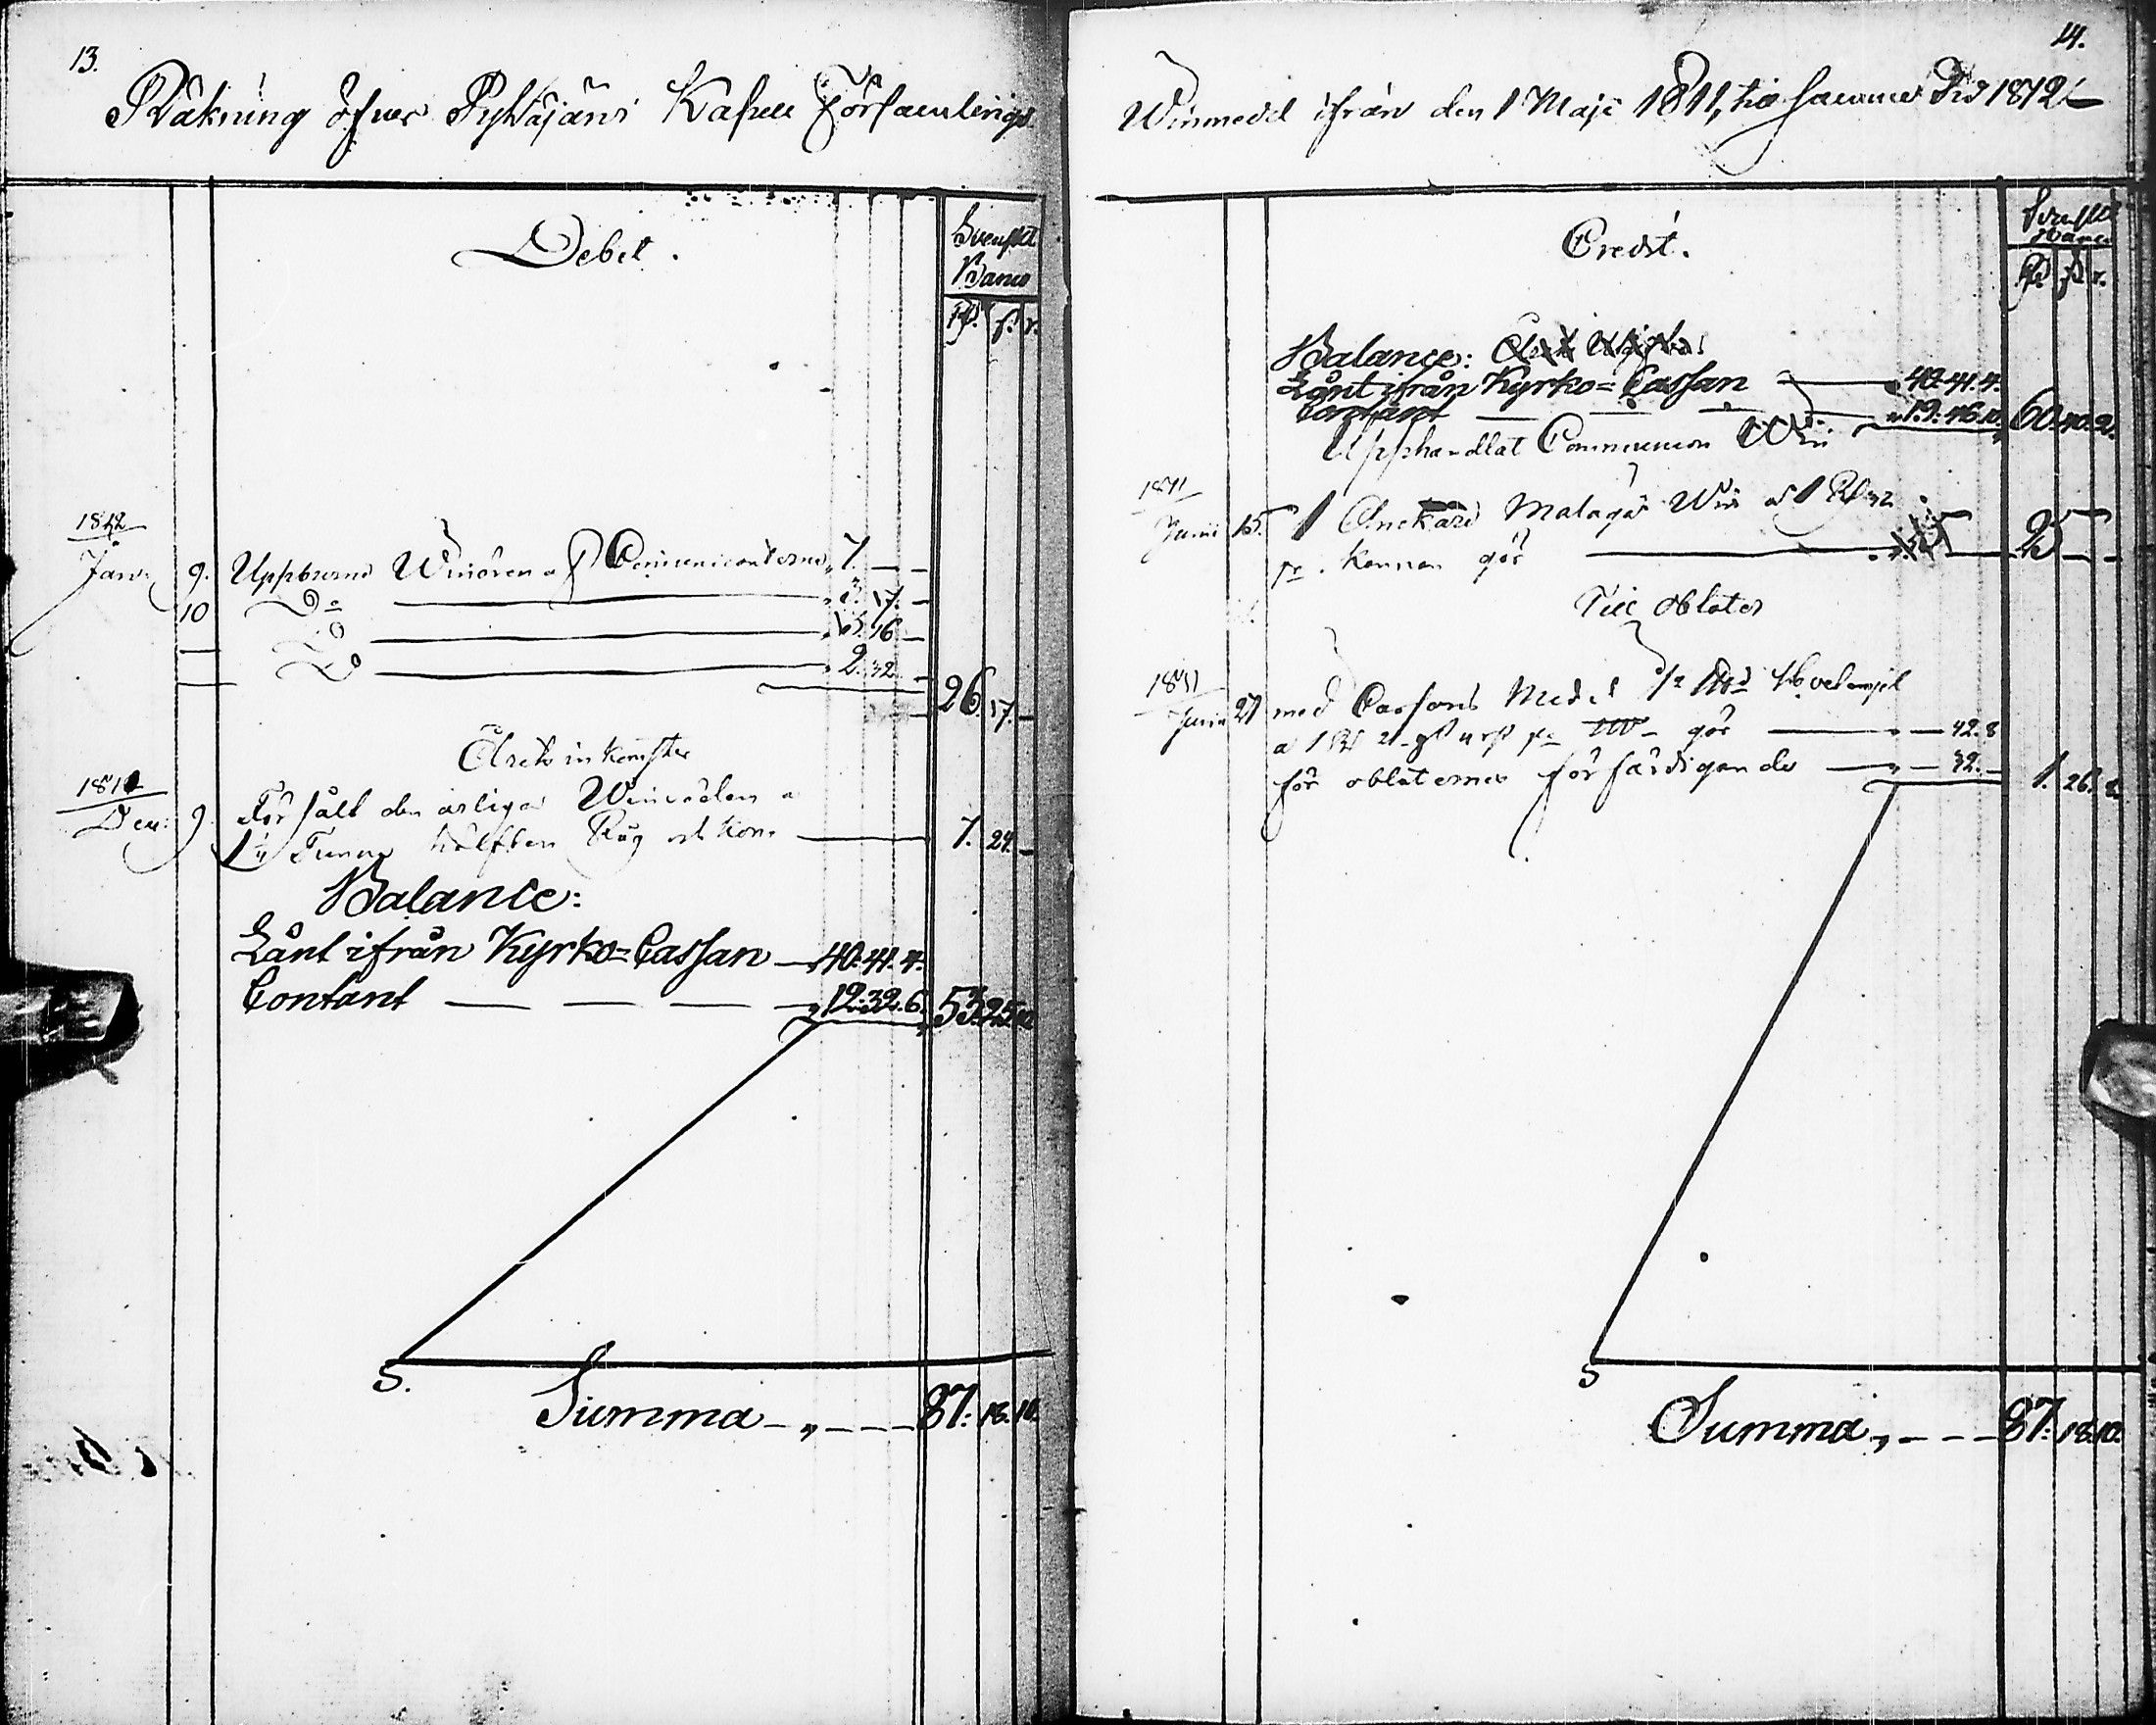 13.
Räkning öfver Pyhäjärvi Kapell Församlings
Debet.
Svenskt
Banco
Rd. s. r.
1812
Janu: 9. Uppburne Winören af Communicanterne „ 7. — —
10 Do „ 3. 17. —
Do „ 13. 16 —
Do „ 2. 32. —
26. 17. —
Årets inkomster
1812
Dec: 9. Försålt den årliga Winsäden a
1 Tunna hälften Råg och Korn 7. 24. —
Balance:
Lånt ifrån Kyrko=Cassan — „ 40. 41. 4.
Contant — — — — „ 12. 32. 6. 53. 25. 10.
S.
Summa — „ — — — 87: 18. 10.
14.
Winmedel ifrån den 1 Maji 1811, till samma Tid 1812
Credit.
Svenskt
Banco
Rd. s. r.
Balance:
Lånt ifrån Kyrko=Cassan — „ 40. 41. 4.
Contant — — — „ 19: 46. 10. 60. 40. 2.
Upphandlat Communion Win
1811
Junii 15. 1 Anckare Malaga Win a 1 Rd 32
pr. Kannan gör 25 25 — —
Till oblater
1811
Junii 27 med Carsons Medel
a gör „ — 42. 8
för oblaternes förfärdigande „ — 32. — 1. 26. 8.
S
Summa „ — — — 87: 18. 10.